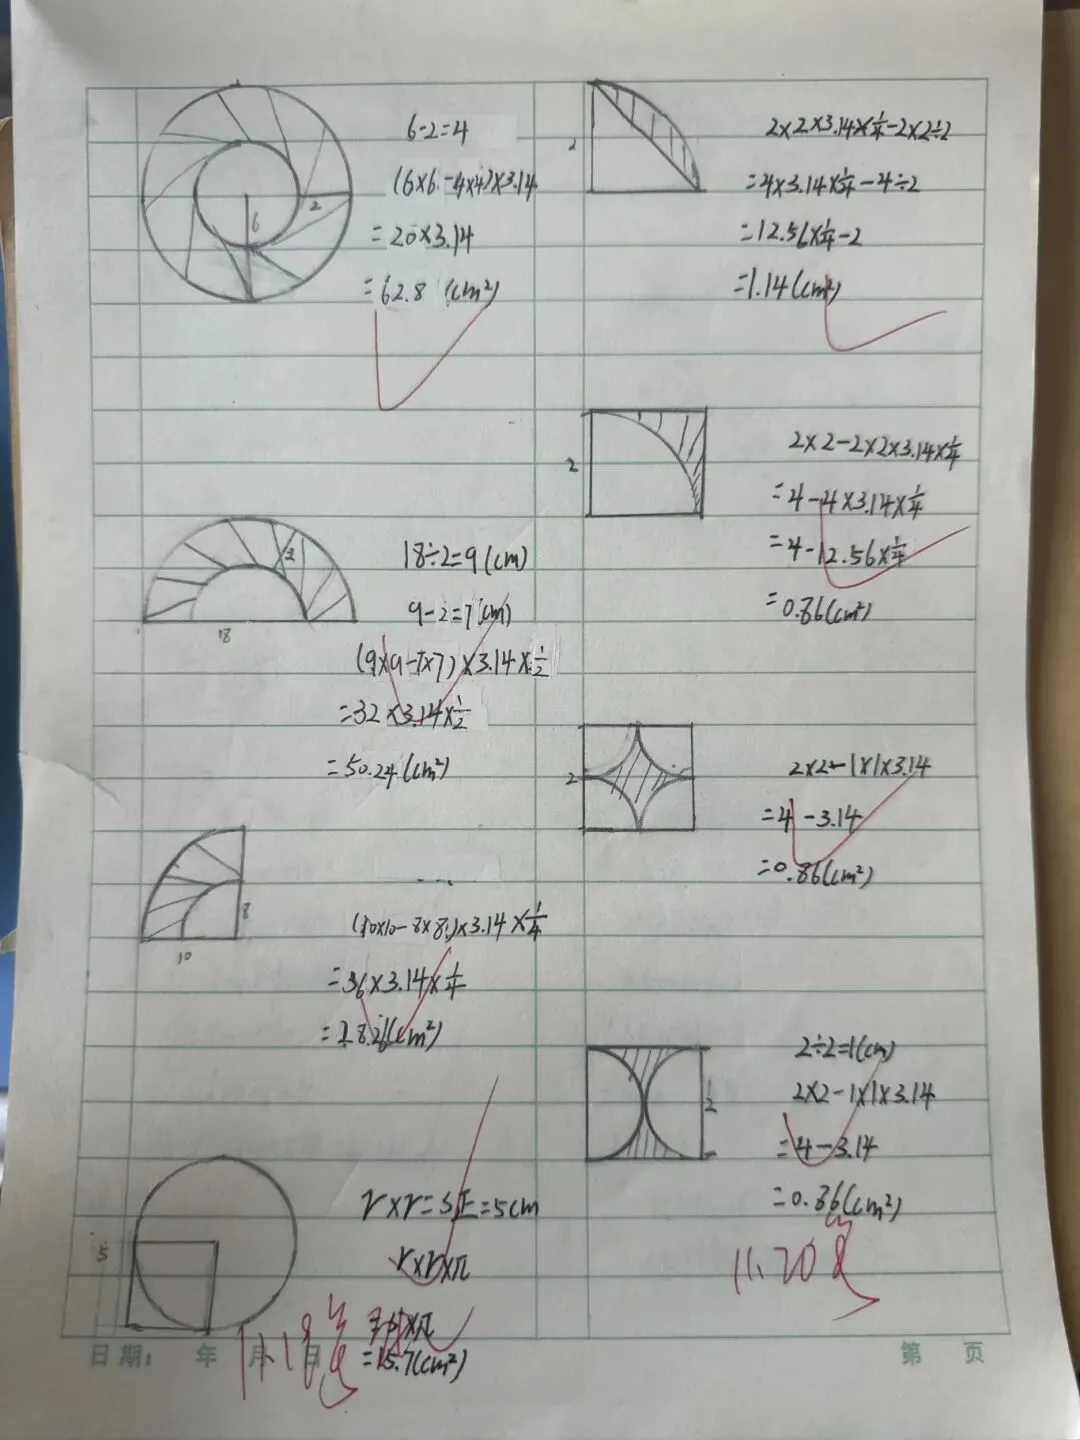 6-2=4
(6×6-4×4)×3.14
=20×3.14
=62.8 (cm²)
2
6
18÷2=9(cm)
9-2=7(cm)
(9×9-7×7)×3.14×1/2
=32×3.14×1/2
=50.24(cm²)
2
18
(10×10-8×8)×3.14×1/4
=36×3.14×1/4
=28.26(cm²)
8
10
r×r=S正=5cm
r×r×π
=15.7(cm²)
5
2×2×3.14×1/4-2×2÷2
=4×3.14×1/4-4÷2
=12.56×1/4-2
=1.14(cm²)
2
2×2-2×2×3.14×1/4
=4-4×3.14×1/4
=4-12.56×1/4
=0.86(cm²)
2
2×2-1×1×3.14
=4-3.14
=0.86(cm²)
2
2÷2=1(cm)
2×2-1×1×3.14
=4-3.14
=0.86(cm²)
2
11.20
11.18
日期: 年 月 日
第 页